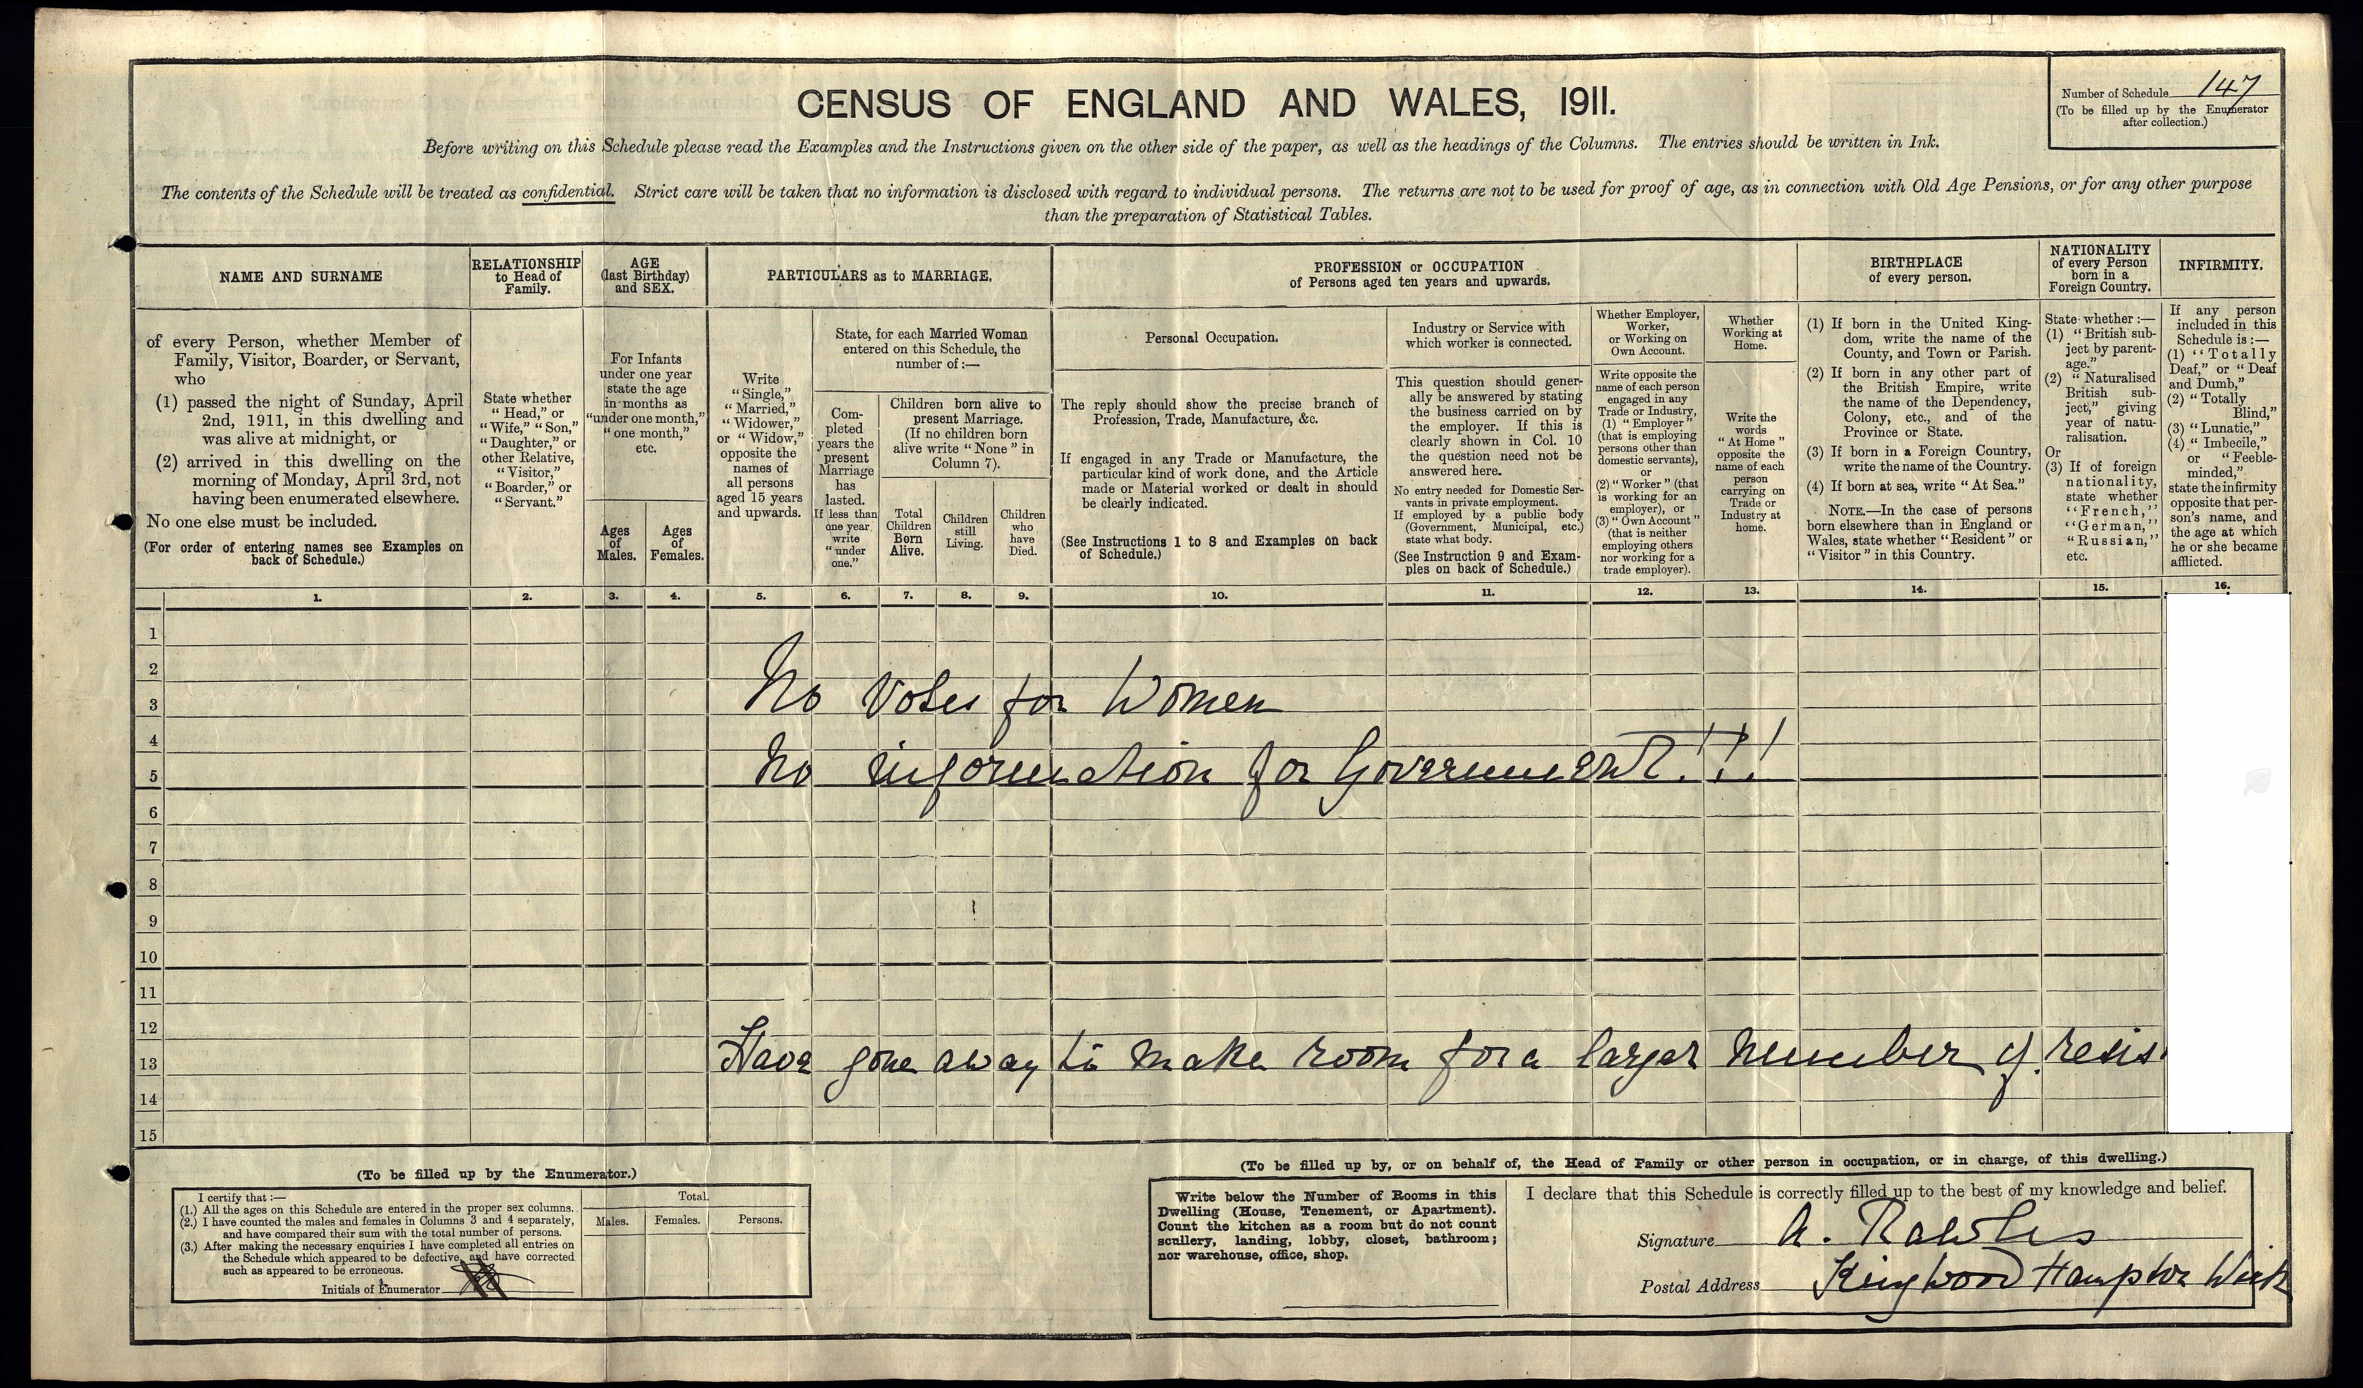 CENSUS OF ENGLAND AND WALES, 1911.
Number of Schedule 147
(To be filled up by the Enumerator
after collection.)
Before writing on this Schedule please read the Examples and the Instructions given on the other side of the paper, as well as the headings of the Columns. The entries should be written in Ink.
The contents of the Schedule will be treated as confidential. Strict care will be taken that no information is disclosed with regard to individual persons. The returns are not to be used for proof of age, as in connection with Old Age Pensions, or for any other purpose
than the preparation of Statistical Tables.
NAME AND SURNAME
of every Person, whether Member of
Family, Visitor, Boarder, or Servant,
who
(1) passed the night of Sunday, April
2nd, 1911, in this dwelling and
was alive at midnight, or
(2) arrived in this dwelling on the
morning of Monday, April 3rd, not
having been enumerated elsewhere.
No one else must be included.
(For order of entering names see Examples on
back of Schedule.)
RELATIONSHIP
to Head of
Family.
State whether
"Head," or
"Wife," "Son,"
"Daughter," or
other Relative,
"Visitor,"
"Boarder," or
"Servant."
AGE
(last Birthday)
and SEX.
For Infants
under one year
state the age
in months as
"under one month,"
"one month,"
etc.
Ages
of
Males.
Ages
of
Females.
PARTICULARS as to MARRIAGE.
Write
"Single,"
"Married,"
"Widower,"
or "Widow,"
opposite the
names of
all persons
aged 15 years
and upwards.
State, for each Married Woman
entered on this Schedule, the
number of :—
Com-
pleted
years the
present
Marriage
has
lasted.
If less than
one year
write
"under
one."
Children born alive to
present Marriage.
(If no children born
alive write "None" in
Column 7).
Total
Children
Born
Alive.
Children
still
Living.
Children
who
have
Died.
PROFESSION or OCCUPATION
of Persons aged ten years and upwards.
Personal Occupation.
The reply should show the precise branch of
Profession, Trade, Manufacture, &c.
If engaged in any Trade or Manufacture, the
particular kind of work done, and the Article
made or Material worked or dealt in should
be clearly indicated.
(See Instructions 1 to 8 and Examples on back
of Schedule.)
Industry or Service with
which worker is connected.
This question should gener-
ally be answered by stating
the business carried on by
the employer. If this is
clearly shown in Col. 10
the question need not be
answered here.
No entry needed for Domestic Ser-
vants in private employment.
If employed by a public body
(Government, Municipal, etc.)
state what body.
(See Instruction 9 and Exam-
ples on back of Schedule.)
Whether Employer,
Worker,
or Working on
Own Account.
Write opposite the
name of each person
engaged in any
Trade or Industry,
(1) "Employer"
(that is employing
persons other than
domestic servants),
or
(2) "Worker" (that
is working for an
employer), or
(3) "Own Account"
(that is neither
employing others
nor working for a
trade employer).
Whether
Working at
Home.
Write the
words
"At Home"
opposite the
name of each
person
carrying on
Trade or
Industry at
home.
BIRTHPLACE
of every person.
(1) If born in the United King-
dom, write the name of the
County, and Town or Parish.
(2) If born in any other part of
the British Empire, write
the name of the Dependency,
Colony, etc., and of the
Province or State.
(3) If born in a Foreign Country,
write the name of the Country.
(4) If born at sea, write "At Sea."
NOTE.—In the case of persons
born elsewhere than in England or
Wales, state whether "Resident" or
"Visitor" in this Country.
NATIONALITY
of every Person
born in a
Foreign Country.
State whether :—
(1) "British sub-
ject by parent-
age."
(2) "Naturalised
British sub-
ject," giving
year of natu-
ralisation.
Or
(3) If of foreign
nationality,
state whether
"French,"
"German,"
"Russian,"
etc.
INFIRMITY.
If any person
included in this
Schedule is :—
(1) "Totally
Deaf," or "Deaf
and Dumb,"
(2) "Totally
Blind,"
(3) "Lunatic,"
(4) "Imbecile,"
or "Feeble-
minded,"
state the infirmity
opposite that per-
son's name, and
the age at which
he or she became
afflicted.
1. 2. 3. 4. 5. 6. 7. 8. 9. 10. 11. 12. 13. 14. 15. 16.
1
2
3 No Votes for Women
4
5 No information for Government!!!
6
7
8
9
10
11
12
13 Have gone away to make room for a larger number of resis
14
15
(To be filled up by the Enumerator.)
I certify that :—
(1.) All the ages on this Schedule are entered in the proper sex columns.
(2.) I have counted the males and females in Columns 3 and 4 separately,
and have compared their sum with the total number of persons.
(3.) After making the necessary enquiries I have completed all entries on
the Schedule which appeared to be defective, and have corrected
such as appeared to be erroneous.
Initials of Enumerator
Total.
Males. Females. Persons.
(To be filled up by, or on behalf of, the Head of Family or other person in occupation, or in charge, of this dwelling.)
Write below the Number of Rooms in this
Dwelling (House, Tenement, or Apartment).
Count the kitchen as a room but do not count
scullery, landing, lobby, closet, bathroom;
nor warehouse, office, shop.
I declare that this Schedule is correctly filled up to the best of my knowledge and belief.
Signature A. Rawles
Postal Address Kingwood Hampton Wick